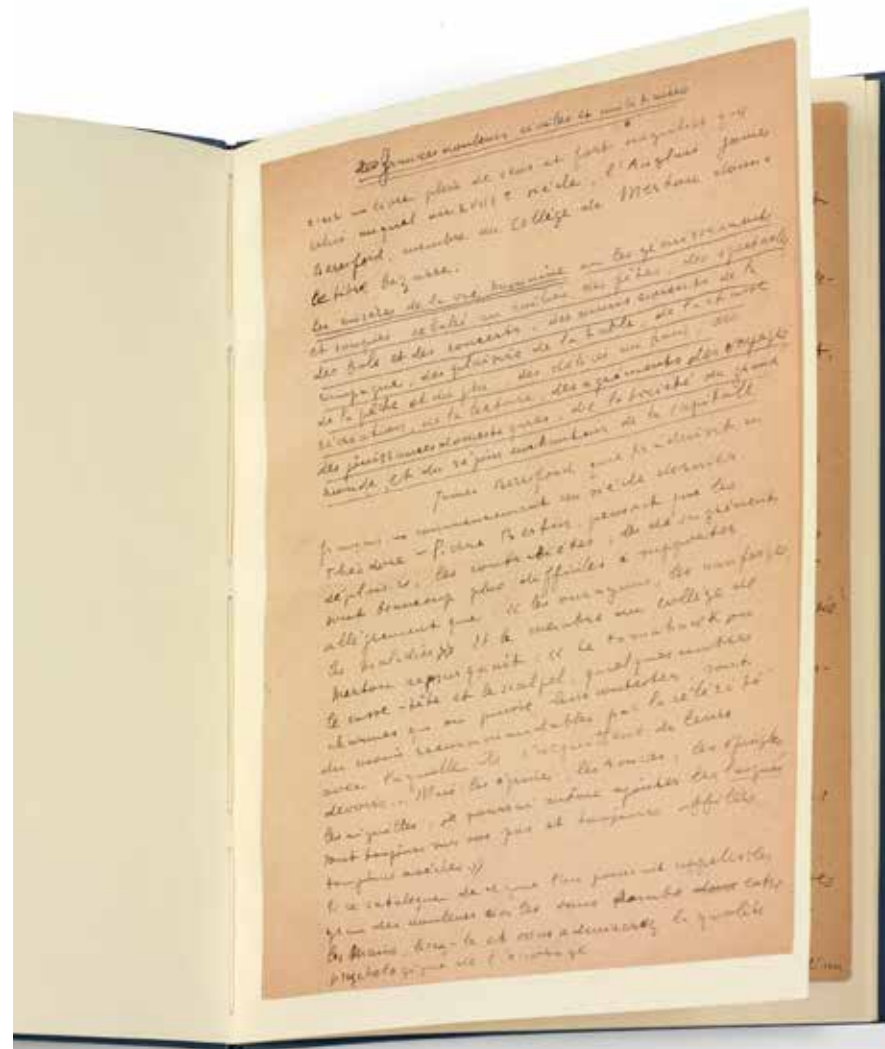 des grandes douleurs civiles et militaires
c'est un livre plein de sens et fort singulier que
celui auquel au XVIII e siècle, l'Anglais James
Beresford, membre du Collège de Merton donna
ce titre bizarre.
les misères de la vie humaine ou les gémissements
et soupirs exhalés au milieu des fêtes, des spectacles
des bals et des concerts, des amusements de la
campagne, des plaisirs de la table, de la chasse
de la pêche et du jeu, des délices du bain, de
récréation, de la lecture, des agréments des voyages
des jouissances domestiques, de la société du grand
monde, et du séjour enchanteur de la capitale
James Beresford que traduisit en
français au commencement du siècle dernier
Théodore-Pierre Bertin, pensait que les
déplaisirs, les contrariétés, les désagréments
sont beaucoup plus difficiles à supporter
allégrement que « les ouragans, les naufrages,
les maladies » et le membre du collège de
Merton reprenait : « Le tomahawk ou
le casse-tête et le scalpel, quelques
charmes qu'on puisse leur contester sont
du moins recommandables par la célérité
avec laquelle ils s'acquittent de leurs
devoirs... Mais les épines, les ronces, les épingles
les aiguilles, je pourrais même ajouter les
sont toujours sur nos pas et toujours affilées
toujours acérées. »
Si ce catalogue de ce que l'on pourrait appeler les
grandes douleurs civiles vous tombe dans entre
les mains, lisez-le et vous admirerez la qualité
psychologique de l'ouvrage